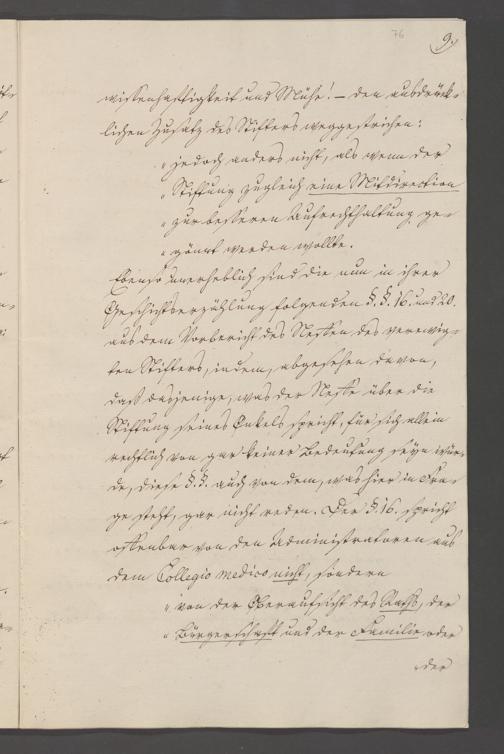 76
9.
wissenhaftigkeit und Mühe! — den ausdrück-
lichen Zusatz des Stifters weggestrichen:
„jedoch anders nicht, als wenn der
„Stiftung zugleich eine Mitdirection
„zur besseren Aufrechthaltung ge-
„gönnt werden wollte.
Ebenso unerheblich sind die nun in ihrer
Geschichtserzählung folgenden §.§. 16. und 20.
aus dem Vorbericht des Neffen des verewig-
ten Stifters, indem, abgesehen davon,
daß dasjenige, was der Neffe über die
Stiftung seines Onkels spricht, für sich allein
rechtlich von gar keiner Bedeutung seyn wür-
de, diese §.§. auch von dem, was hier in Fra-
ge steht, gar nicht reden. Der §. 16. spricht
offenbar von den Administratoren aus
dem Collegio medico nicht, sondern
„von der Oberaufsicht des Raths, der
„Bürgerschaft und der Familie oder
„der